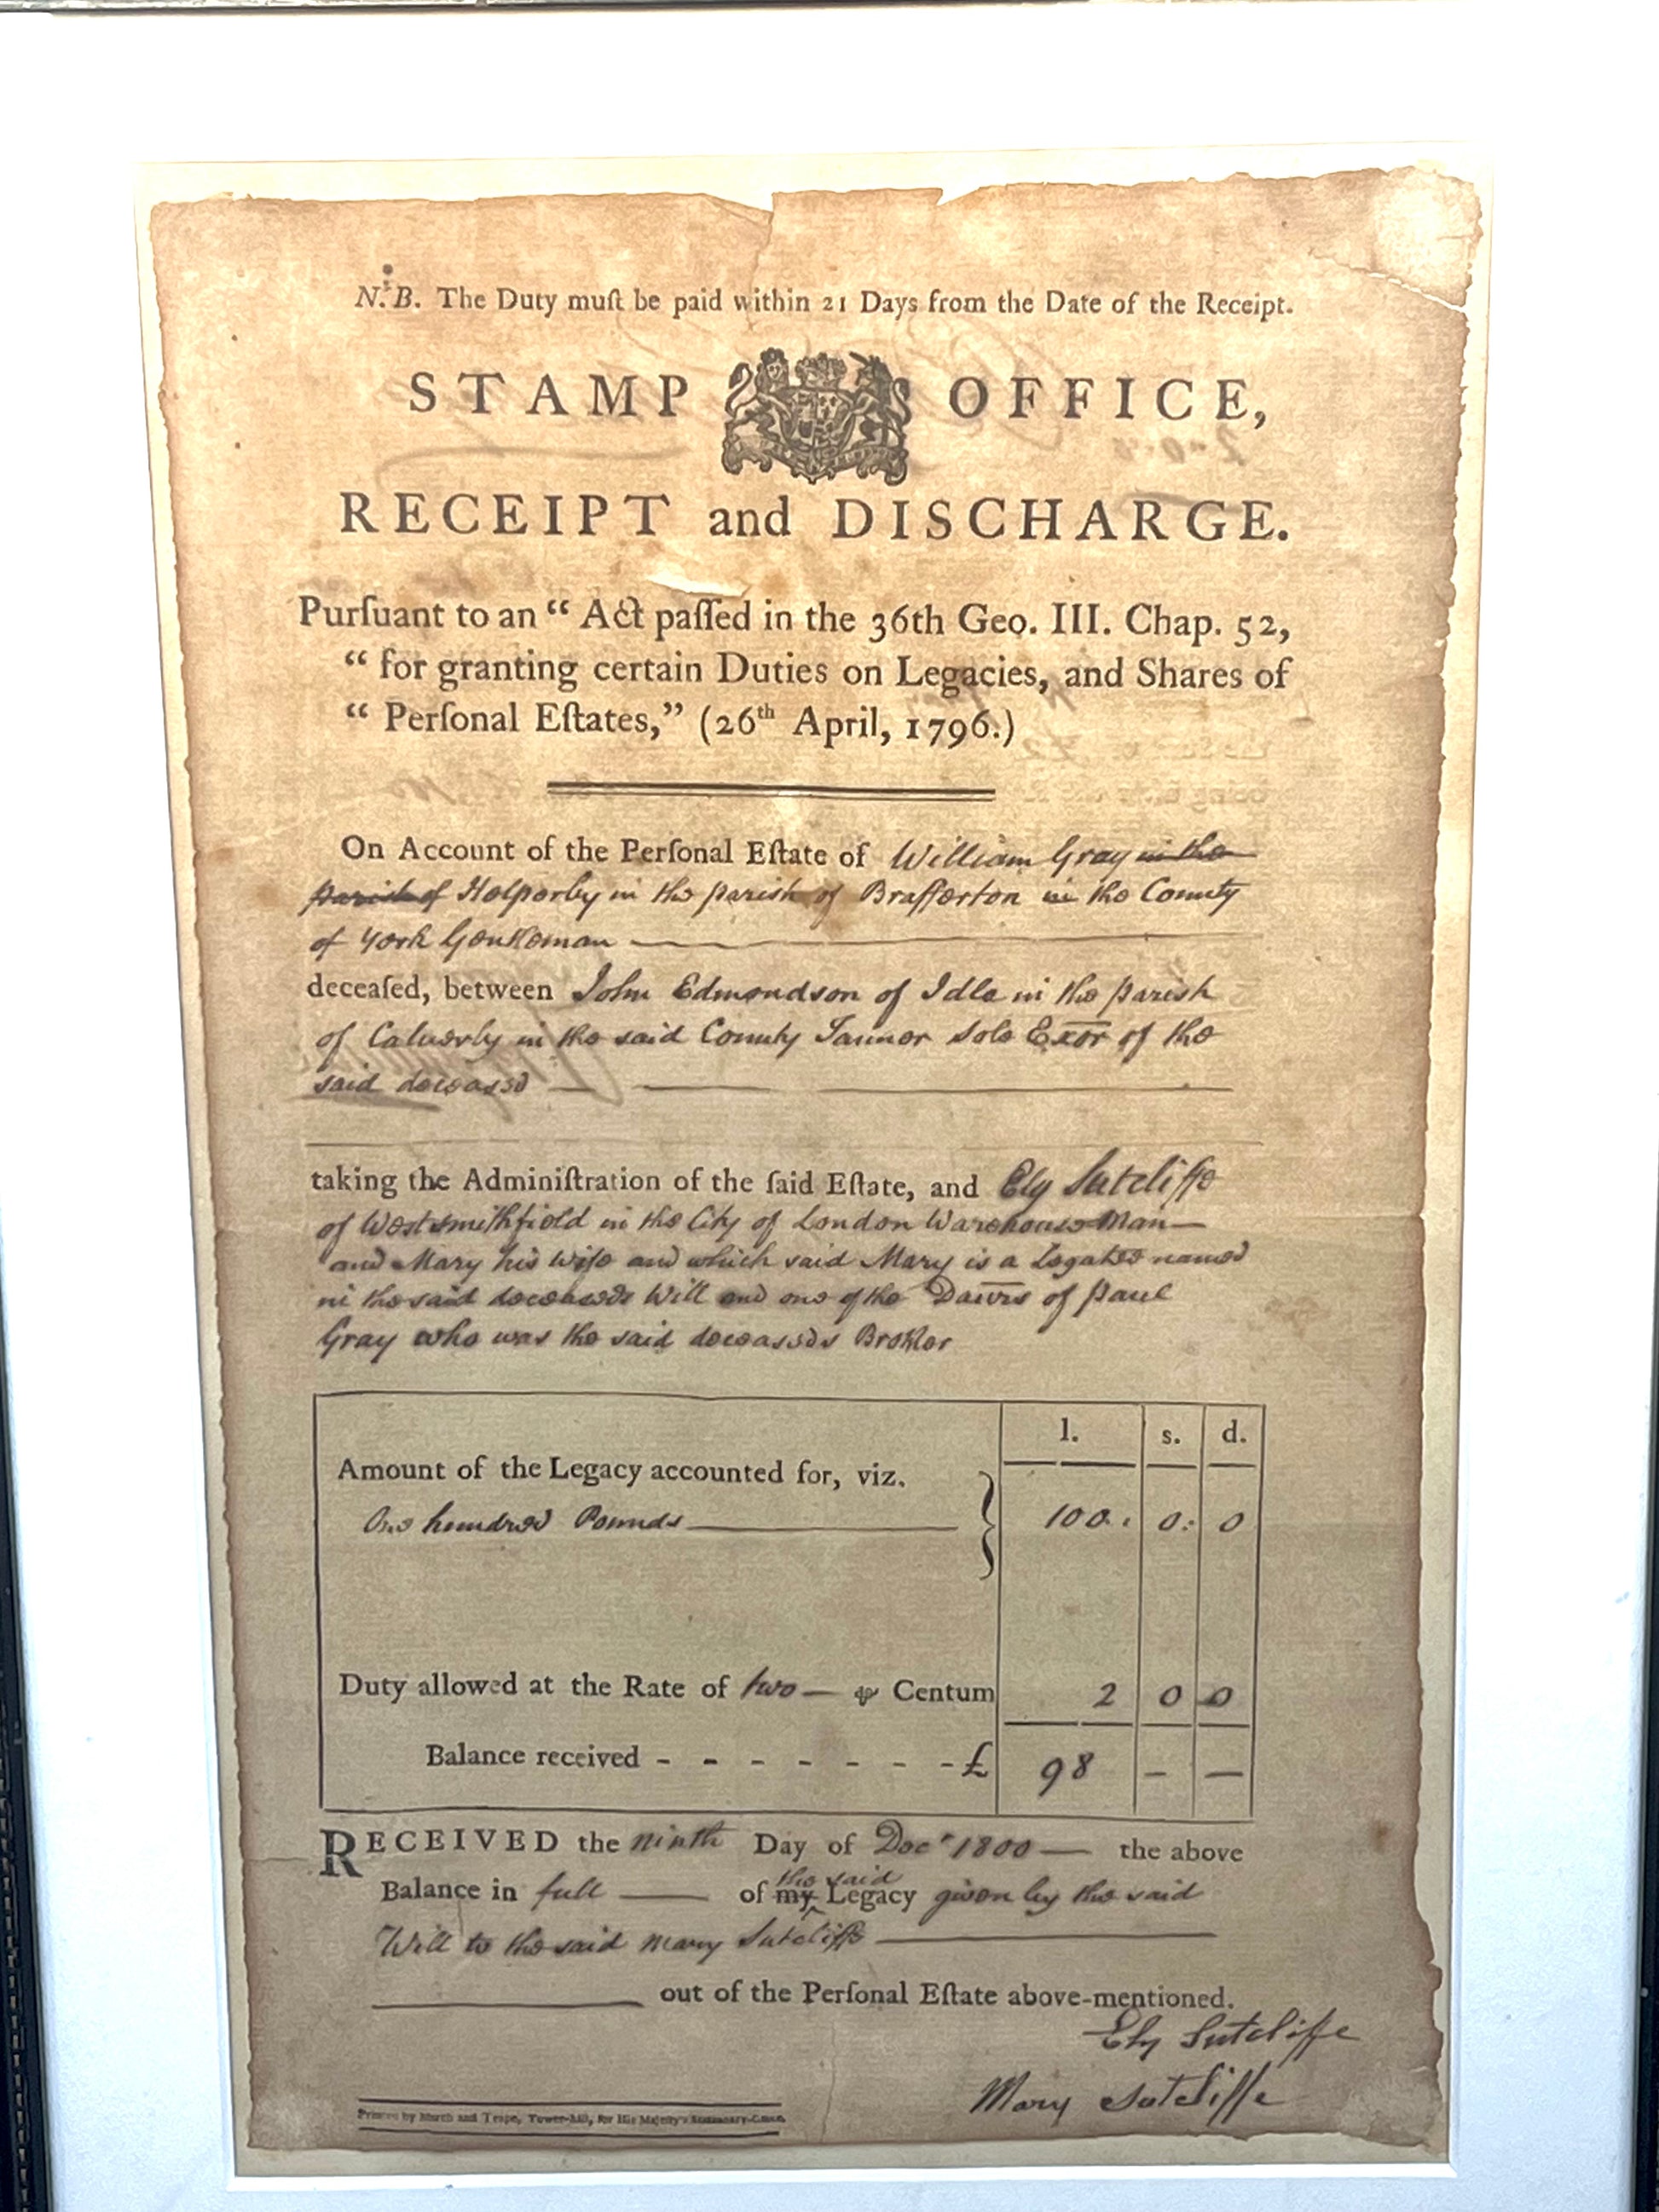 N.B. The Duty muſt be paid within 21 Days from the Date of the Receipt.
STAMP OFFICE,
RECEIPT and DISCHARGE.
Purſuant to an “ Act paſſed in the 36th Geo. III. Chap. 52,
“ for granting certain Duties on Legacies, and Shares of
“ Perſonal Eſtates,” (26th April, 1796.)
On Account of the Perſonal Eſtate of William Gray in the
parish of Helperby in the parish of Brafferton in the County
of York Gentleman
deceaſed, between John Edmondson of Idle in the parish
of Calverly in the said County Tanner Sole Exor of the
said deceased
taking the Adminiſtration of the ſaid Eſtate, and Ely Sutcliffe
of West Smithfield in the City of London Warehouse Man
and Mary his wife and which said Mary is a Legatee named
in the said deceaseds Will and one of the Dau'rs of Paul
Gray who was the said deceaseds Brother
l. s. d.
Amount of the Legacy accounted for, viz.
One hundred Pounds 100. 0: 0
Duty allowed at the Rate of two — ⅌ Centum 2 0 0
Balance received - - - - - - - £ 98 — —
RECEIVED the ninth Day of Decr 1800 — the above
the said
Balance in full of my Legacy given by the said
Will to the said Mary Sutcliffe
out of the Perſonal Eſtate above-mentioned.
Ely Sutcliffe
Mary Sutcliffe
Printed by March and Teape, Tower-Hill, for His Majeſty's Stationary-Office.